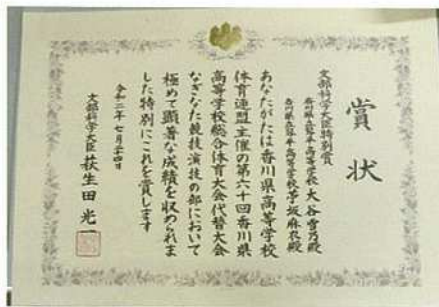 賞状
文部科学大臣特別賞
香川県立琴平高等学校 大谷雪乃殿
香川県立琴平高等学校 守坂麻衣殿
あなたがたは香川県高等学校
体育連盟主催の第六十回香川県
高等学校総合体育大会代替大会
なぎなた競技演技の部において
極めて顕著な成績を収められま
した特別にこれを賞します
令和二年七月二四日
文部科学大臣 萩生田光一